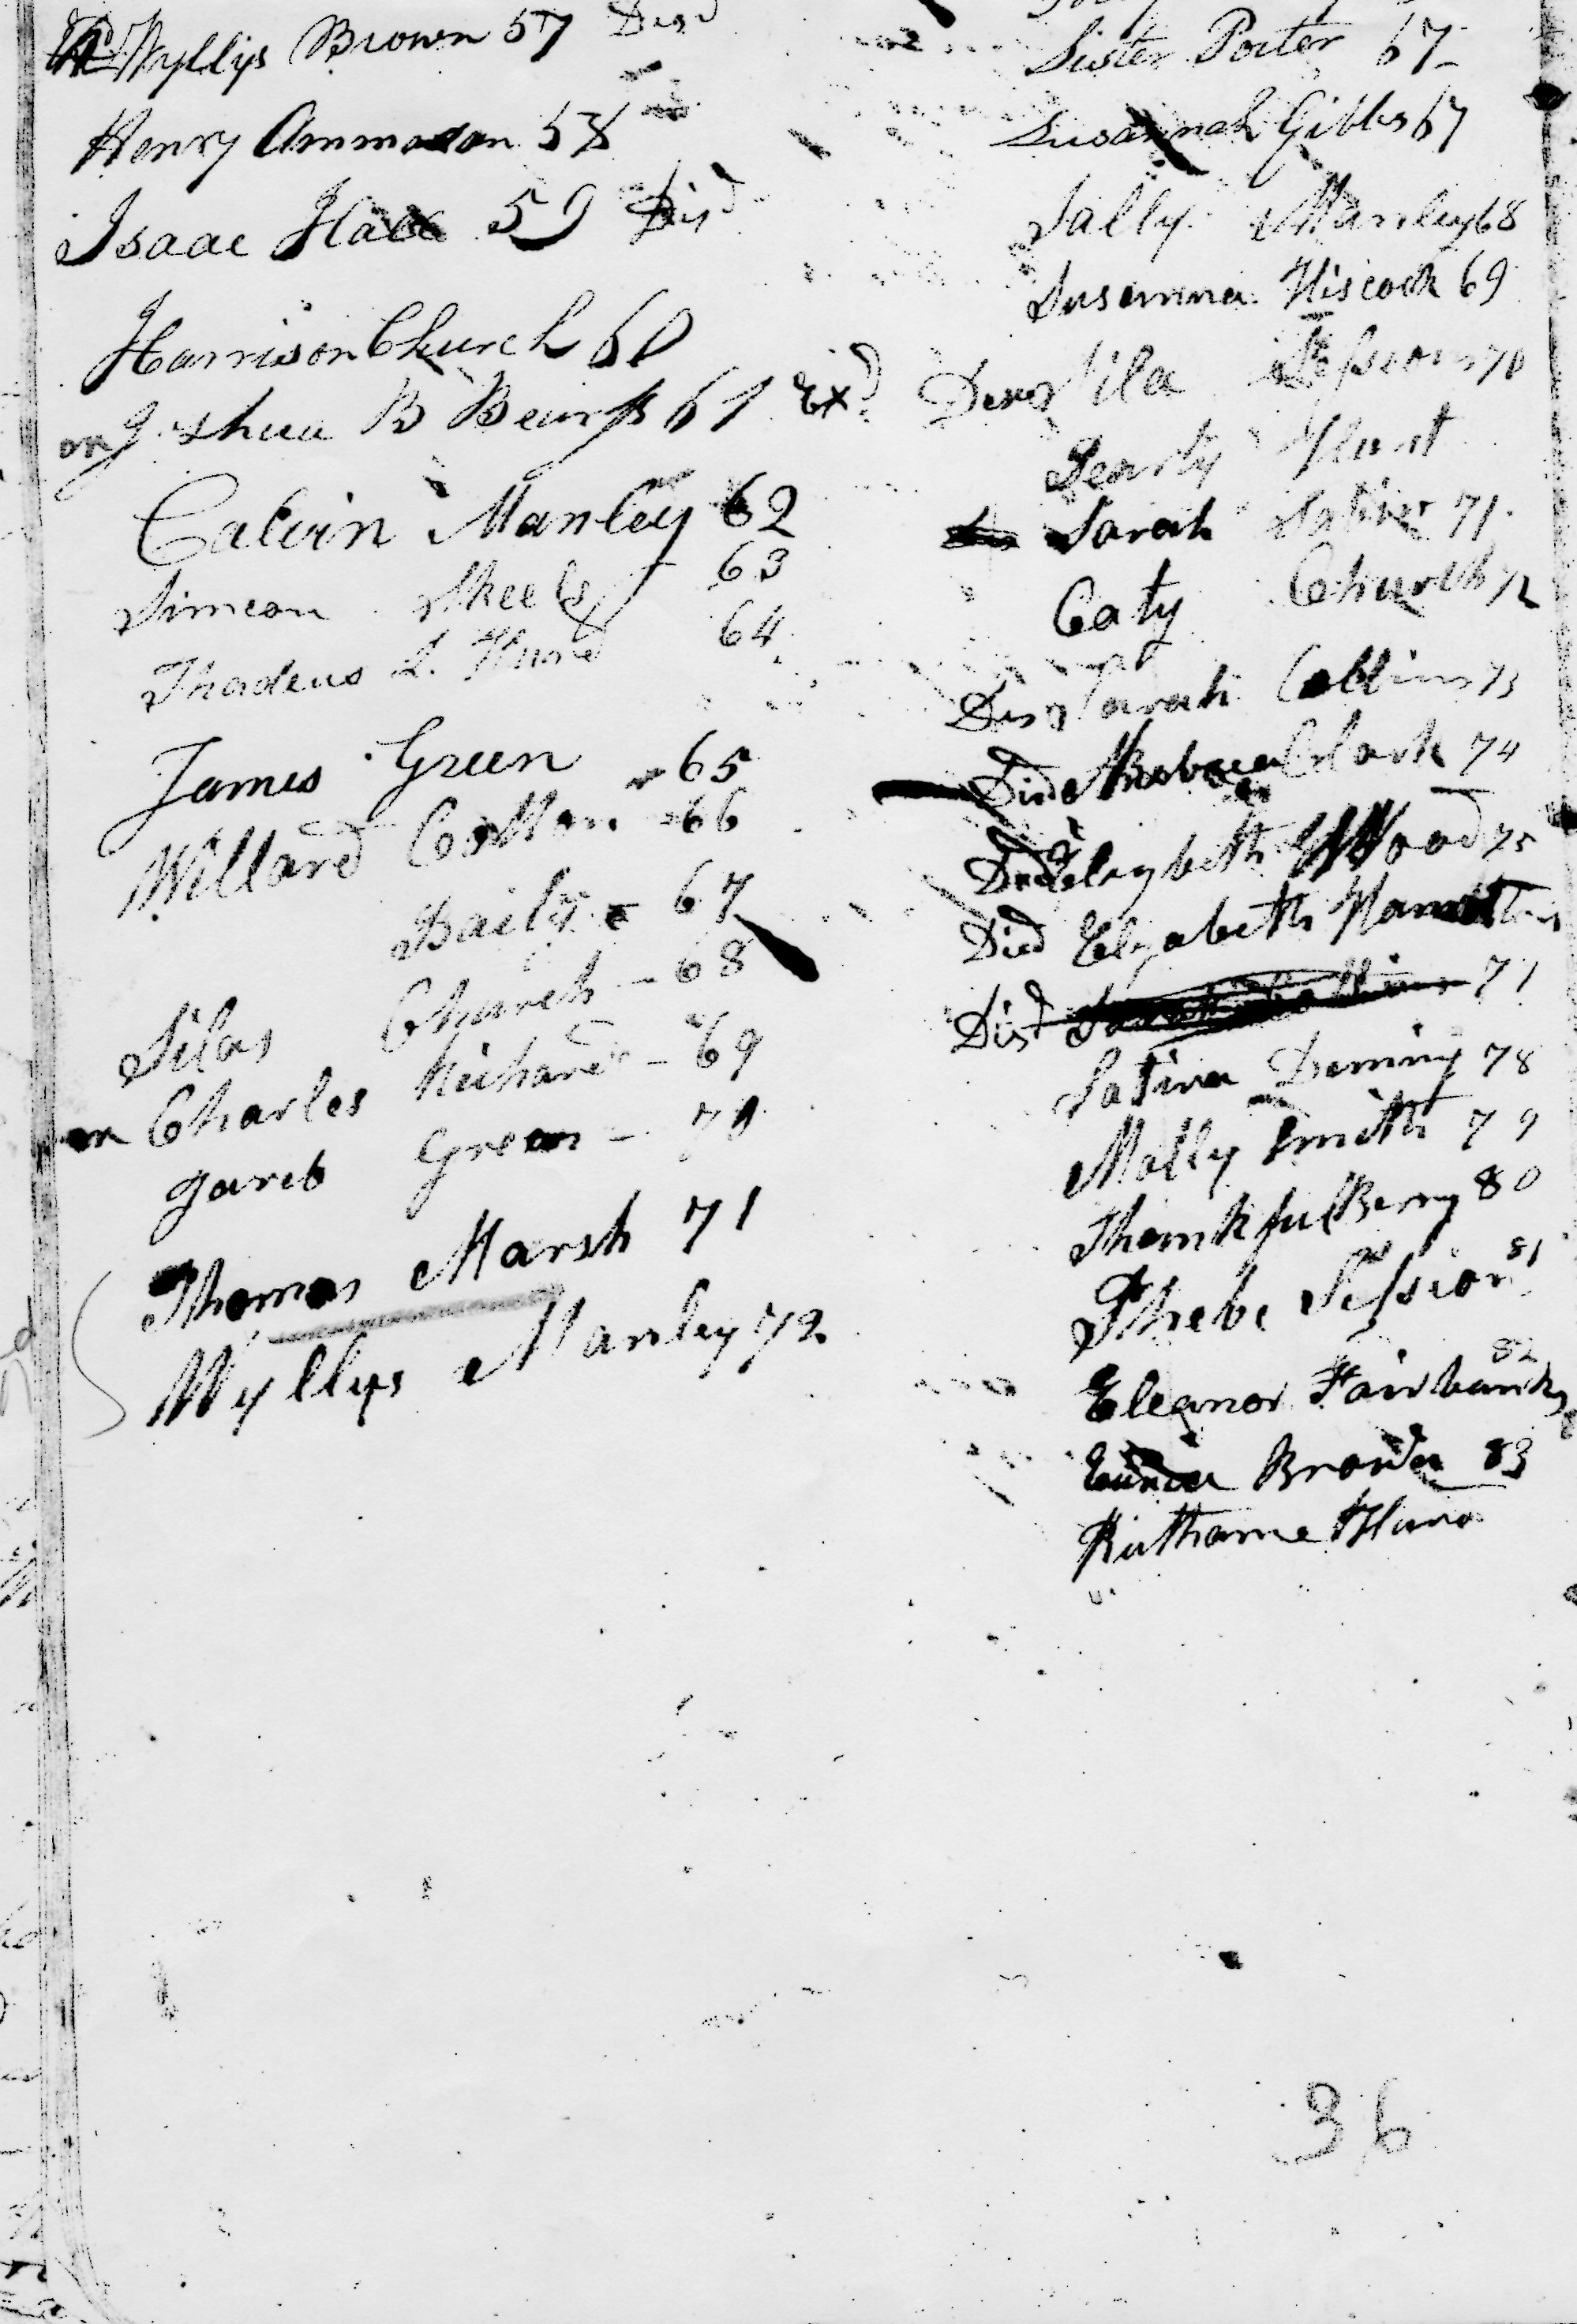 Wyllys Brown 57 Disd
Henry Ammadon 58
Isaac Hall 59 Disd
Harrison Church 60
Joshua B Bears 61 Exd
Calvin Manley 62
Simeon Skeels 63
Thadeus L. Hurd 64
James Green 65
Willard Cotton 66
Baily 67
Silas Church - 68
Charles Richard - 69
Jareb Green - 70
Thomas Marsh 71
Wyllys Manley 72
Sister Porter 67
Susannah Gibbs 67
Sally Manley 68
Susanna Hiscock 69
Sila Sessions 70
Hunt
Sarah 71
Caty Church 72
Disd Sarah Collins 73
Died Clark 74
Died Elizabeth Wood 75
Died Elizabeth
Disd 71
Latina Deming 78
Molly Smith 79
Thankful Berry 80
Phebe Session 81
Eleanor Fairbanks 82
Eunice Brown 83
Ruthame
36